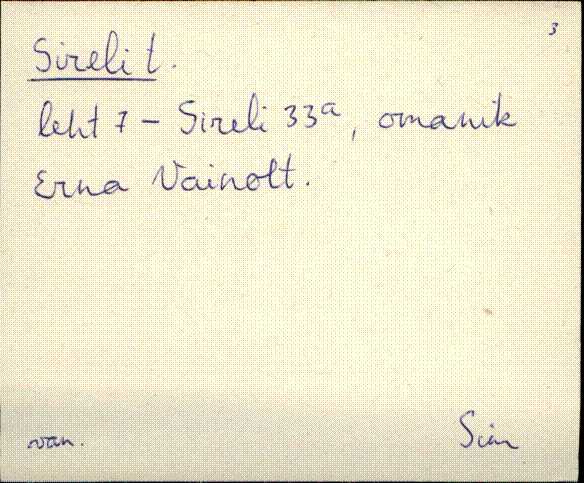 3
Sireli t.
leht 7 - Sireli 33a, omanik
Erna Vainolt.
van. Sim